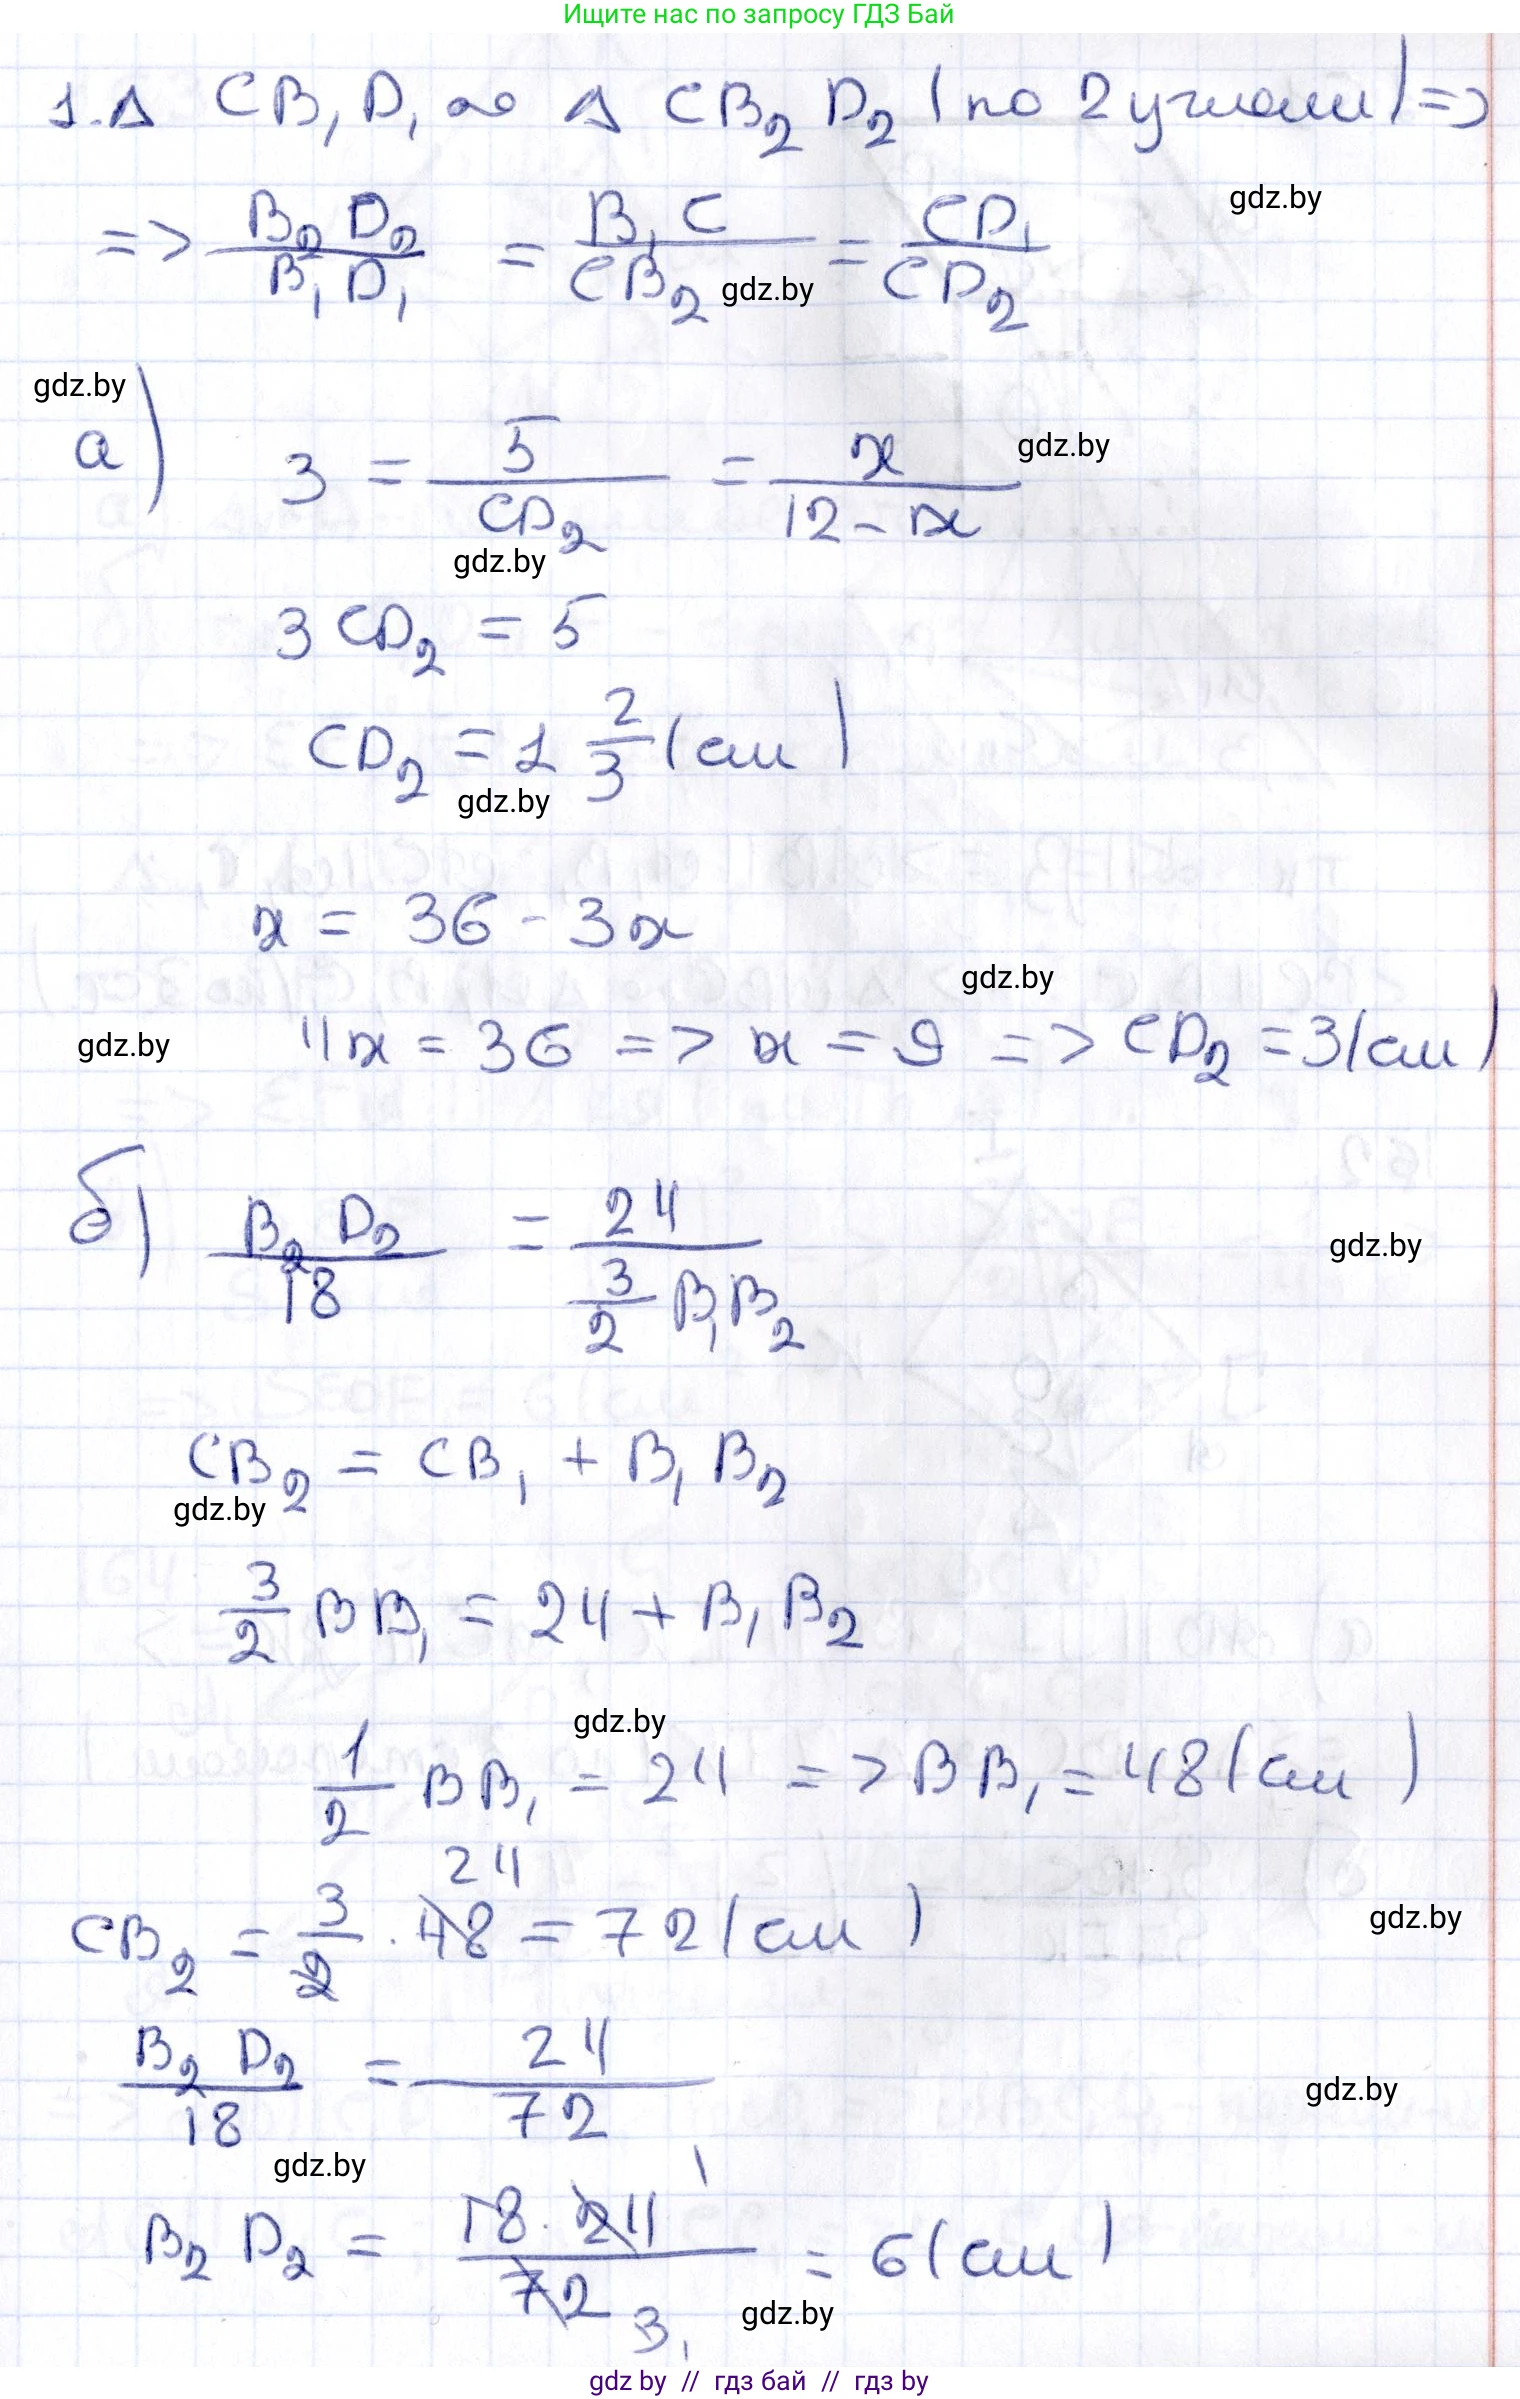 Ищите нас по запросу ГДЗ Бай
1. Δ CB₁D₁ ∾ Δ CB₂D₂ (по 2 углам) =>
gdz.by
=> B₂D₂/B₁D₁ = B₁C/CB₂ = CD₁/CD₂
gdz.by
gdz.by
а) 3 = 5/CD₂ = x/(12-x)
gdz.by
gdz.by
3 CD₂ = 5
CD₂ = 1 2/3 (см)
gdz.by
x = 36 - 3x
gdz.by
gdz.by
4x = 36 => x = 9 => CD₂ = 3(см)
б) B₂D₂/18 = 24/(3/2 B₁B₂)
gdz.by
CB₂ = CB₁ + B₁B₂
gdz.by
3/2 BB₁ = 24 + B₁B₂
gdz.by
1/2 BB₁ = 24 => BB₁ = 48(см)
24
CB₂ = 3/2 · 48 = 72(см)
gdz.by
B₂D₂/18 = 24/72
gdz.by
gdz.by
1
B₂D₂ = 18·24/72 = 6(см)
3
gdz.by
gdz by // гдз бай // гдз by